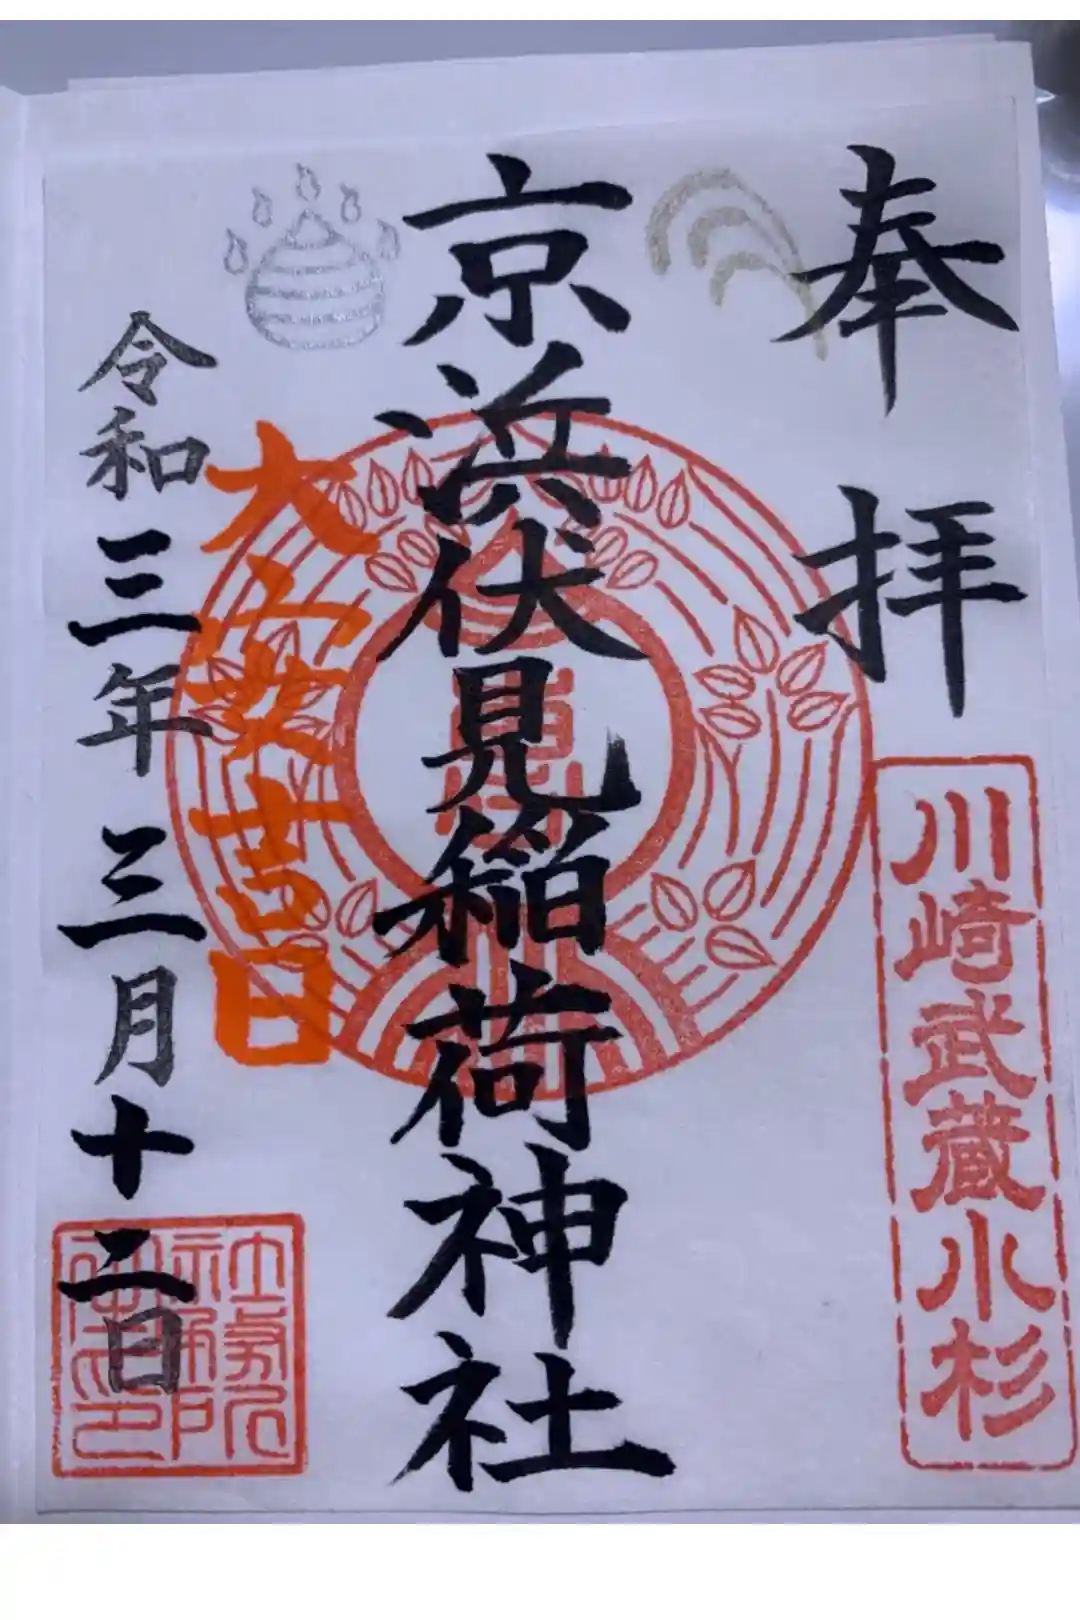 奉拝
川崎武蔵小杉
京浜伏見稲荷神社
大安吉日
令和三年三月十二日